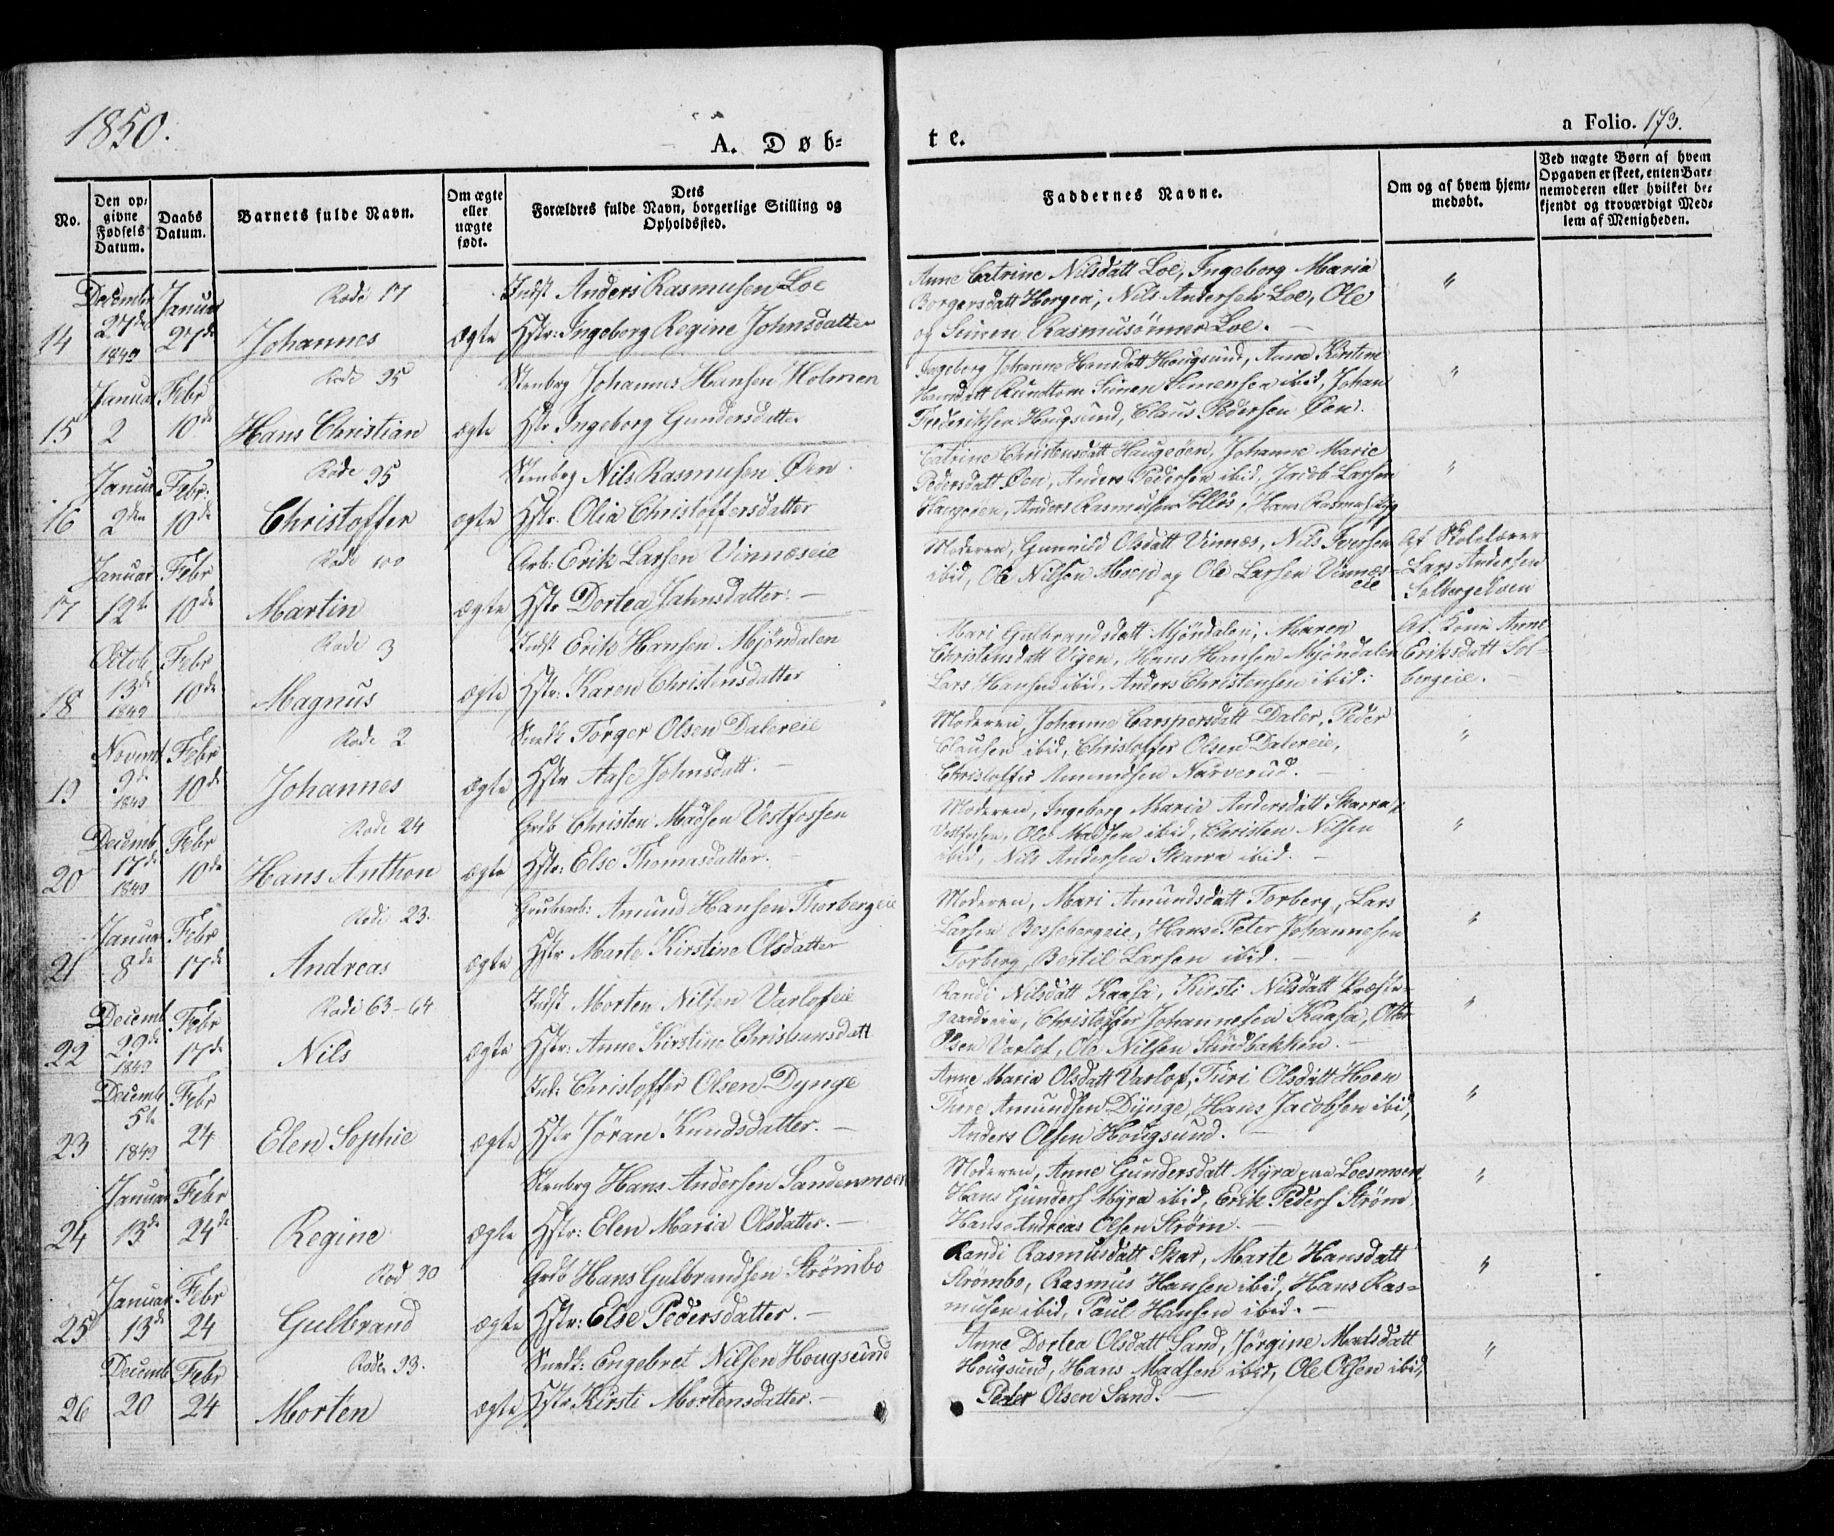 1850.
A. Døb-
te.
a Folio. 173.
No.
Den op-
givne
Fødsels
Datum.
Daabs
Datum.
Barnets fulde Navn.
Om ægte
eller
uægte
født.
Dets
Forældres fulde Navn, borgerlige Stilling og
Opholdssted.
Faddernes Navne.
Om og af hvem hjem-
medøbt.
Ved uægte Børn af hvem
Opgaven er skeet, enten Bar-
nemoderen eller hvilket be-
kjendt og troværdigt Med-
lem af Menigheden.
Decembr Januar Rode 17 Indst Anders Rasmusen Loe
14 27de 1849 27de Johannes ægte Hstr: Ingeborg Regine Johnsdatter
Anne Catrine Nilsdatt Loe, Ingeborg Maria
Borgersdatt Horgen, Nils Andersen Loe, Ole
og Simen Rasmusønner Loe. —
"
Januar Febr Rode 95 Stenbrg Johannes Hansen Holmen
15 2 10de Hans Christian ægte Hstr Ingeborg Gundersdatter
Ingeborg Johanne Hansdatt Hougsund, Anne Kirstine
Hansdatt Rundtom Simen Simensen ibid, Johan
Frederiksen Hougsund, Claus Pedersen Øen.
"
Januar Febr. Rode 95 Stenbrg Nils Rasmusen Øen.
16 2den 10de Christoffer ægte Hstr. Olia Christoffersdatter
Catrine Christensdatt Haugeøen, Johanne Marie
Pedersdatt Øen, Anders Pedersen ibid, Jacob Larsen
Haugeøen, Anders Rasmusen, Hans Rasmus
"
Januar Febr Rode 100 Arb: Erik Larsen Vinnæseie
17 12te 10de Martin ægte Hstr Dortea Jahnsdatter. —
Moderen, Gunnild Olsdatt Vinnæs, Nils Iversen
ibid, Ole Nilsen Moen og Ole Larsen Vinnæs-
eie
Af Skolelærer
Lars Andersen
Solbergelven
Octob Febr Rode 3 Indst Erik Hansen Mjöndalen
18 13de 1849 10de Magnus ægte Hstr: Karen Christensdatter
Mari Gulbrandsdatt Mjöndalen, Maren
Christensdatt Vigen, Hans Hansen Mjöndalen
Lars Hansen ibid, Anders Christensen ibid:
Af Kone Anne
Eriksdatt Sol-
bergeie. —
Novemb Febr Rode 2 Snedk Torger Olsen Dalereie
19 9de 1849 10de Johannes ægte Hstr Aase Johnsdatt. —
Moderen, Johanne Carspersdatt Daler, Peder
Clausen ibid, Christoffer Olsen Dalereie,
Christoffer Amundsen Narverud. —
"
Decemb Febr Rode 24 Grdb Christen Madsen Vestfossen
20 17de 1849 10de Hans Anthon ægte Hstr: Else Thomasdatter. —
Moderen, Ingeborg Maria Andersdatt Skarra,
Vestfossen, Ole Madsen ibid, Christen Nilsen
ibid, Nils Andersen Skarra ibid. —
"
Januar Febr Rode 23. Grubearb: Amund Hansen Thorbergeie
21 8de 17de Andreas ægte Hstr Marte Kirstine Olsdatter
Moderen, Mari Amundsdatt Torberg, Lars
Larsen Bossebergeie, Hans Peter Johannesen
Torberg, Bertil Larsen ibid. —
"
Decemb Febr Rode 63-64 Indst Morten Nilsen Varlofeie
22 29de 1849 17de Nils ægte Hstr: Anne Kirstine Christiansdatt
Randi Nilsdatt Kaasa, Kirsti Nilsdatt Præste-
gaardseie, Christoffer Johannesen Kaasa, Otter
Olsen Varlof, Ole Nilsen Sandbakken. —
"
Decemb Febr Ind: Christoffer Olsen Dynge
23 5te 1849 24 Elen Sophie ægte Hstr Jöran Knudsdatter. —
Anne Maria Olsdatt Varlof, Turi Olsdatt Hoen
Thore Amundsen Dynge, Hans Jacobsen ibid,
Anders Olsen Hougsund. —
"
Januar Febr Stenbrg Hans Andersen Sandenmoen
24 13de 24de Regine ægte Hstr: Elen Maria Olsdatter. —
Moderen, Anne Gundersdatt Myra paa Loesmoen,
Hans Gunders Myra ibid, Erik Peders Strøm,
Hans Andreas Olsen Strøm. —
"
Januar Febr Rod 90 Grdb Hans Gulbrandsen Strømbo
25 13de 24 Gulbrand ægte Hstr: Else Pedersdatter. —
Randi Rasmusdatt Skar, Marte Hansdatt
Strömbo, Rasmus Hansen ibid, Hans Ras-
musen ibid, Paul Hansen ibid. —
"
Decemb Febr Rode 93. Snedk: Engebret Nilsen Hougsund
26 20 24 Morten ægte Hstr Kirsti Mortensdatter. —
Anne Dortea Olsdatt Sand, Jörgine Madsdatt
Hougsund, Hans Madsen ibid, Ole Olsen ibid,
Peder Olsen Sand. —
"